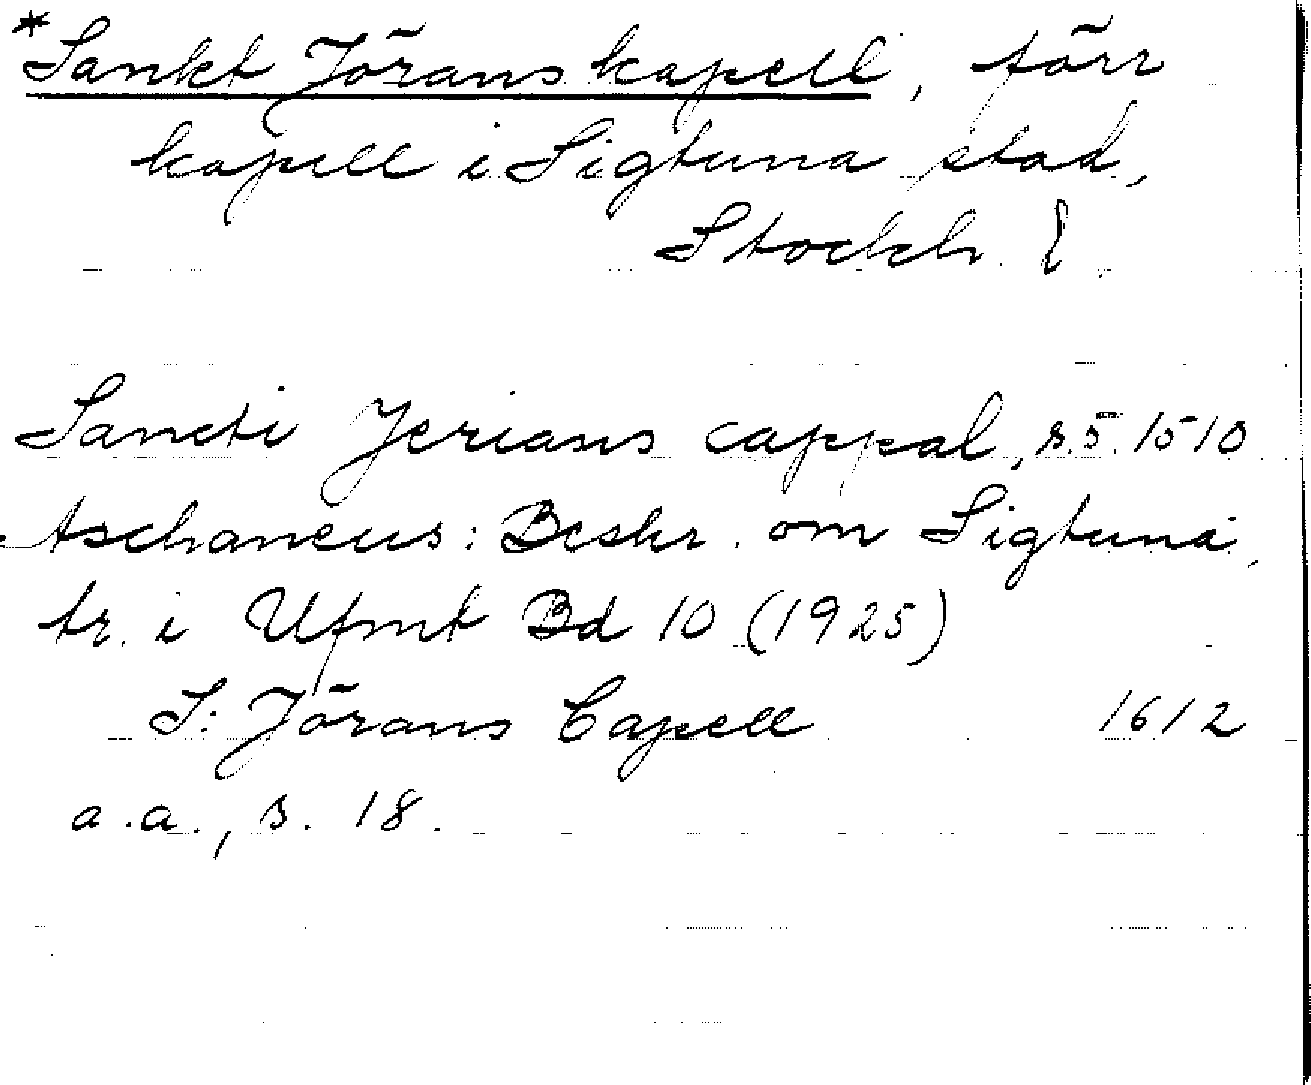 *Sankt Jörans kapell, förr
kapell i Sigtuna stad,
Stockh. l
Sancti Jerians cappal, s. 5. 1510
Aschaneus: Beskr. om Sigtuna,
tr. i Ufmt Bd 10 (1925)
S: Jörans Capell 1612
a.a., s. 18.